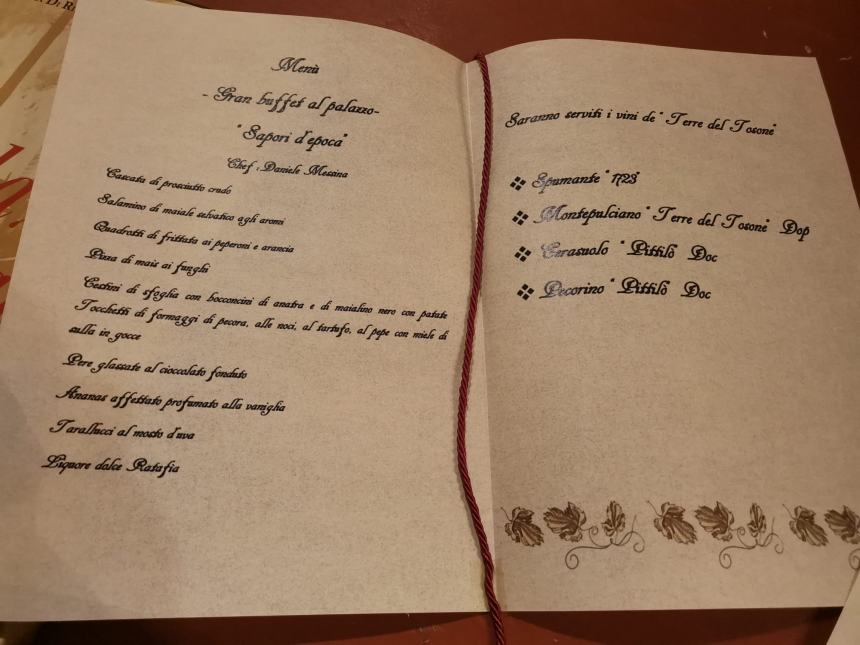 Menù
- Gran buffet al palazzo-
"Sapori d'epoca"
Chef : Daniele Messina
Cascata di prosciutto crudo
Salamino di maiale selvatico agli aromi
Quadrotti di frittata ai peperoni e arancia
Pizza di mais ai funghi
Cestini di sfoglia con bocconcini di anatra e di maialino nero con patate
Tocchetti di formaggi di pecora, alle noci, al tartufo, al pepe con miele di
sulla in gocce
Pere glassate al cioccolato fonduto
Ananas affettato profumato alla vaniglia
Tarallucci al mosto d'uva
Liquore dolce Ratafia
Saranno serviti i vini de " Terre del Tosone"
Spumante " 1723"
Montepulciano " Terre del Tosone" Dop
Cerasuolo " Pittilò" Doc
Pecorino " Pittilò" Doc